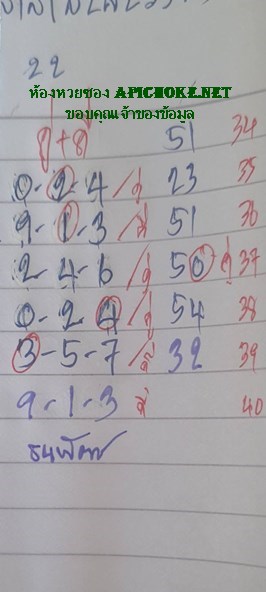 22
ห้องหวยซอง APICHOKE.NET
ขอบคุณเจ้าของข้อมูล
คู่+คี่ 51 34
0-2-4/คู่ 23 35
9-1-3/คี่ 51 36
2-4-6/คู่ 50 คู่ 37
0-2-4/คู่ 54 38
3-5-7/คี่ 32 39
9-1-3 คี่ 40